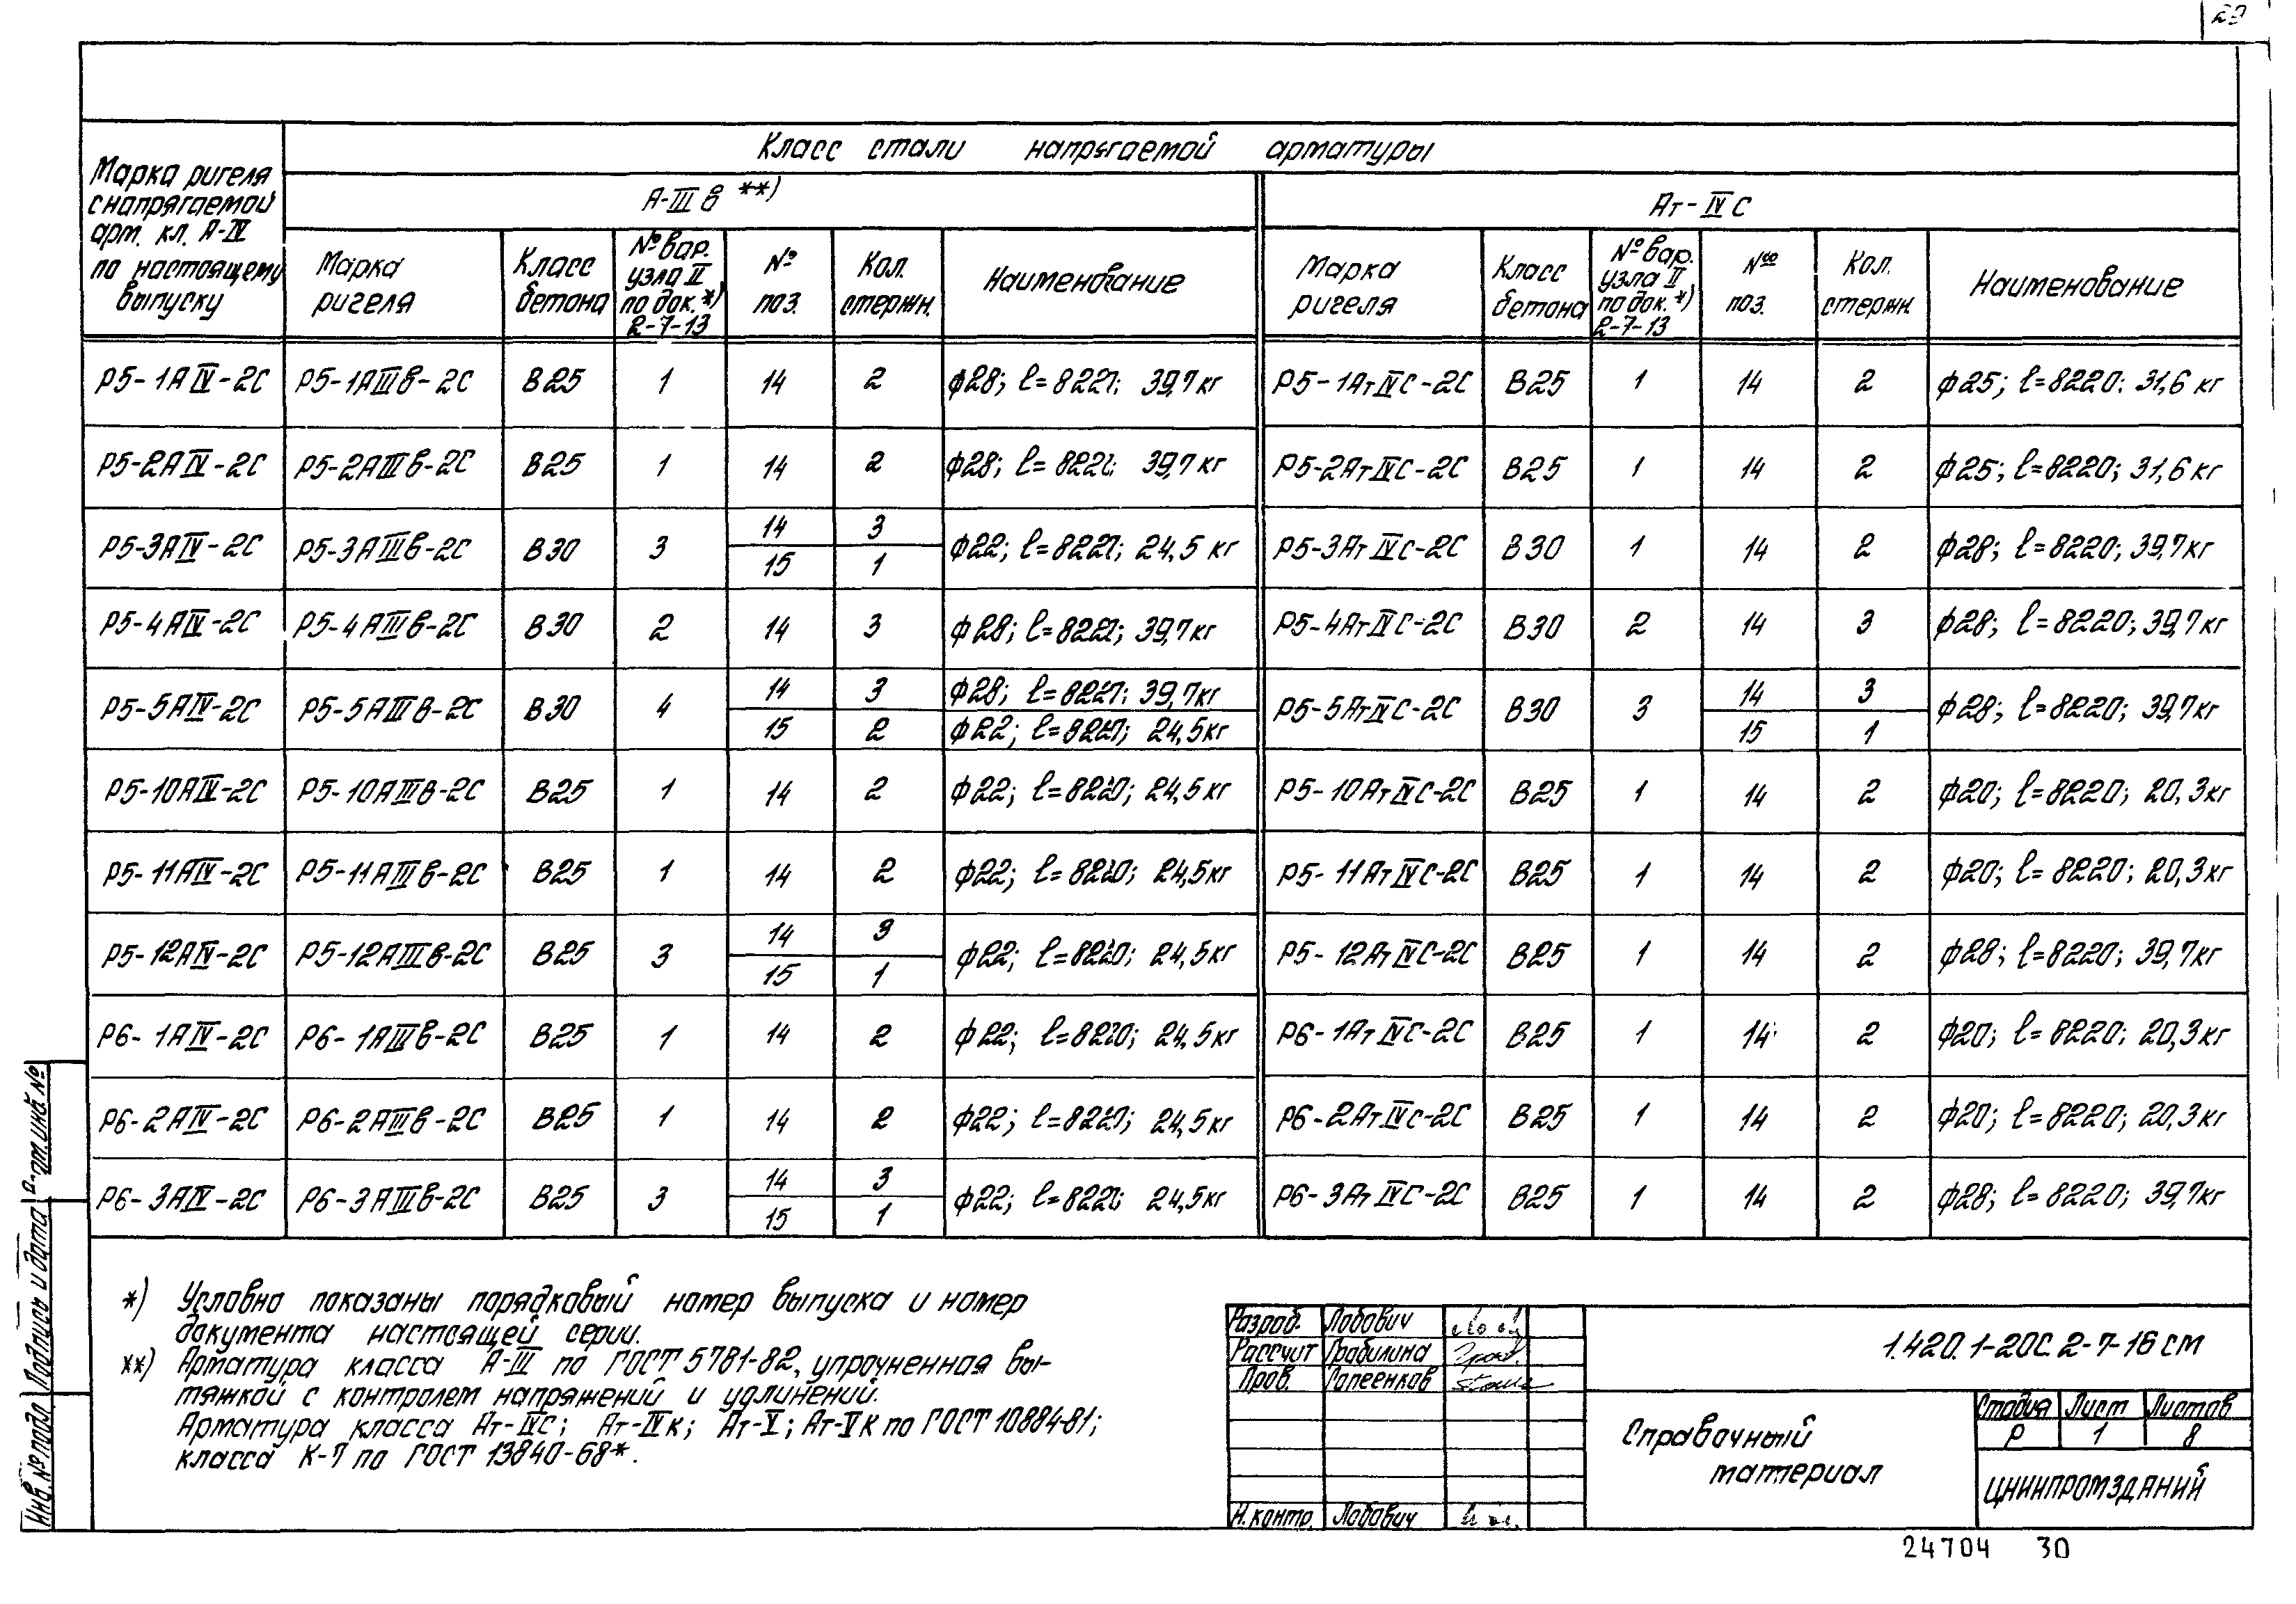 29
Класс стали напрягаемой арматуры
Марка ригеля
с напрягаемой
арм. кл. А-IV
по настоящему
выпуску
А-III в **)
Ат-IVС
Марка ригеля | Класс бетона | № вар. узла II по док. *) 2-7-13 | № поз. | Кол. стержн. | Наименование | Марка ригеля | Класс бетона | № вар. узла II по док. *) 2-7-13 | №№ поз. | Кол. стержн. | Наименование
Р5-1АIV-2С | Р5-1АIIIв-2С | В25 | 1 | 14 | 2 | ф28; ℓ=8220; 39,7кг | Р5-1АтIVС-2С | В25 | 1 | 14 | 2 | ф25; ℓ=8220; 31,6 кг
Р5-2АIV-2С | Р5-2АIIIв-2С | В25 | 1 | 14 | 2 | ф28; ℓ=8220; 39,7кг | Р5-2АтIVС-2С | В25 | 1 | 14 | 2 | ф25; ℓ=8220; 31,6 кг
Р5-3АIV-2С | Р5-3АIIIв-2С | В30 | 3 | 14 | 3 | ф22; ℓ=8220; 24,5 кг | Р5-3АтIVС-2С | В30 | 1 | 14 | 2 | ф28; ℓ=8220; 39,7кг
15 | 1
Р5-4АIV-2С | Р5-4АIIIв-2С | В30 | 2 | 14 | 3 | ф28; ℓ=8220; 39,7кг | Р5-4АтIVС-2С | В30 | 2 | 14 | 3 | ф28; ℓ=8220; 39,7кг
Р5-5АIV-2С | Р5-5АIIIв-2С | В30 | 4 | 14 | 3 | ф28; ℓ=8220; 39,7кг | Р5-5АтIVС-2С | В30 | 3 | 14 | 3 | ф28; ℓ=8220; 39,7кг
15 | 2 | ф22; ℓ=8220; 24,5кг | 15 | 1
Р5-10АIV-2С | Р5-10АIIIв-2С | В25 | 1 | 14 | 2 | ф22; ℓ=8220; 24,5кг | Р5-10АтIVС-2С | В25 | 1 | 14 | 2 | ф20; ℓ=8220; 20,3кг
Р5-11АIV-2С | Р5-11АIIIв-2С | В25 | 1 | 14 | 2 | ф22; ℓ=8220; 24,5кг | Р5-11АтIVС-2С | В25 | 1 | 14 | 2 | ф20; ℓ=8220; 20,3кг
Р5-12АIV-2С | Р5-12АIIIв-2С | В25 | 3 | 14 | 3 | ф22; ℓ=8220; 24,5кг | Р5-12АтIVС-2С | В25 | 1 | 14 | 2 | ф28; ℓ=8220; 39,7кг
15 | 1
Р6-1АIV-2С | Р6-1АIIIв-2С | В25 | 1 | 14 | 2 | ф22; ℓ=8220; 24,5кг | Р6-1АтIVС-2С | В25 | 1 | 14 | 2 | ф20; ℓ=8220; 20,3кг
Р6-2АIV-2С | Р6-2АIIIв-2С | В25 | 1 | 14 | 2 | ф22; ℓ=8220; 24,5кг | Р6-2АтIVС-2С | В25 | 1 | 14 | 2 | ф20; ℓ=8220; 20,3кг
Р6-3АIV-2С | Р6-3АIIIв-2С | В25 | 3 | 14 | 3 | ф22; ℓ=8220; 24,5кг | Р6-3АтIVС-2С | В25 | 1 | 14 | 2 | ф28; ℓ=8220; 39,7кг
15 | 1
*) Условно показаны порядковый номер выпуска и номер
документа настоящей серии.
**) Арматура класса А-III по ГОСТ 5781-82, упрочненная вы-
тяжкой с контролем напряжений и удлинений.
Арматура класса Ат-IVС; Ат-IVК; Ат-V; Ат-VК по ГОСТ 10884-81;
класса К-7 по ГОСТ 13840-68*.
Разраб. Лобович
Рассчит Грабилина
Пров. Гапеенков
Н.контр. Лобович
1.420.1-20С.2-7-16 СМ
Справочный
материал
Стадия Лист Листов
Р 1 8
ЦНИИПРОМЗДАНИЙ
Инв.№подл. Подпись и дата инв.№
24704 30